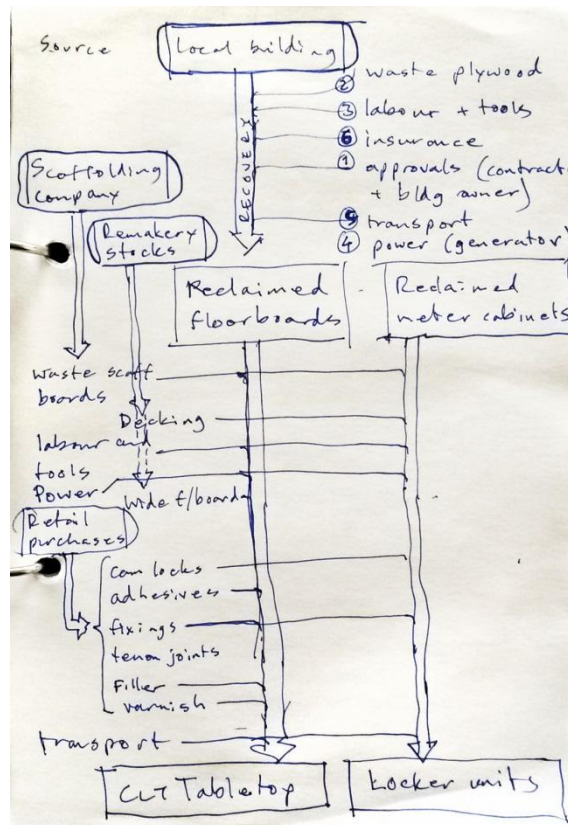 Source
Local building
② waste plywood
③ labour + tools
⑥ insurance
① approvals (contract
+ bldg owner)
⑤ transport
④ power (generator)
RECOVERY
Scaffolding
company
Remakery
stocks
Reclaimed
floorboards
Reclaimed
meter cabinets
waste scaff
boards
Decking
labour and
tools
Power
wide f/board
Retail
purchases
Cam locks
adhesives
fixings
tenon joints
Filler
varnish
transport
CLT Tabletop
Locker units